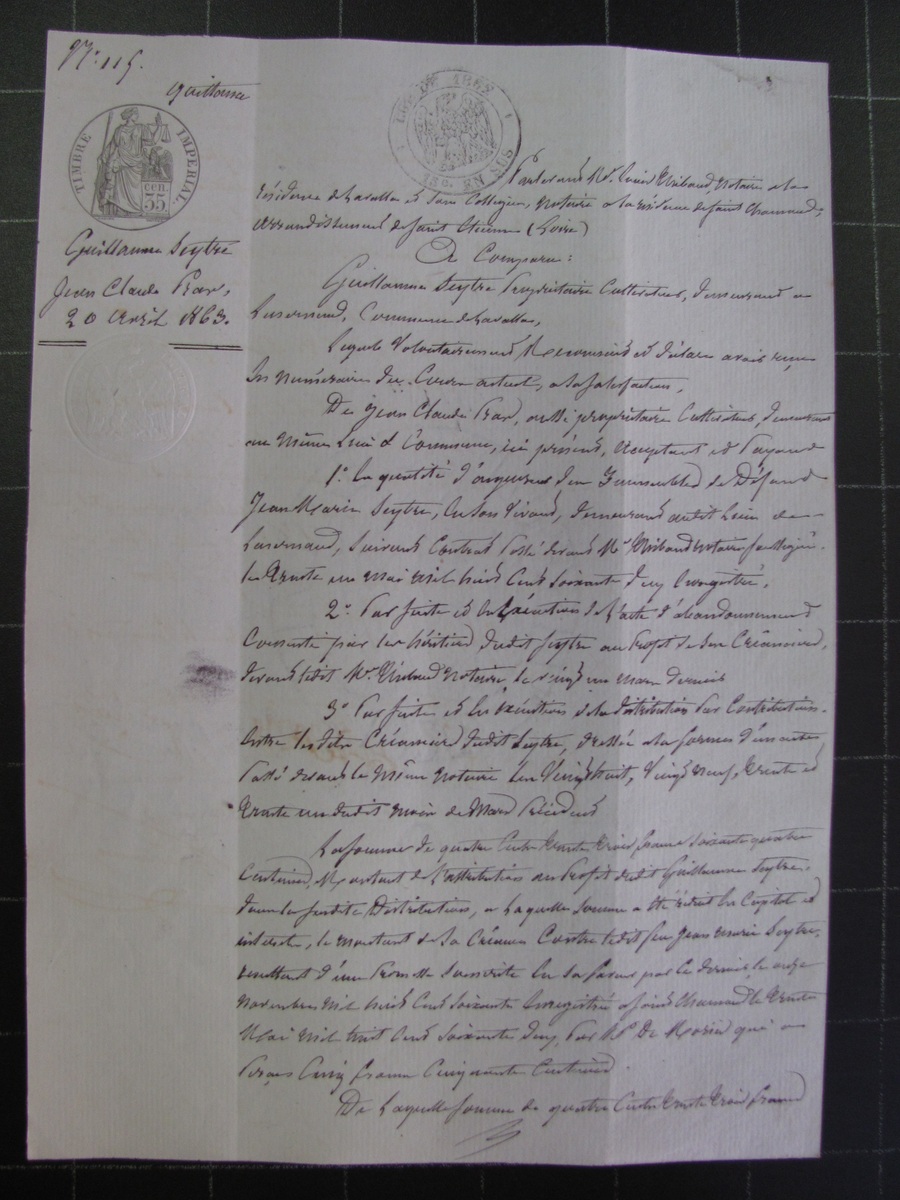 N.° 115.
quittance
TIMBRE IMPERIAL
35 cen.
LOI DE 1862
EN SUS
Guillaume Seytre
Jean Claude
20 avril 1863.
Pardevant M.e Thibaud, Notaire à la
résidence de et son Collègue, Notaire à la résidence de saint Chamond,
arrondissement de Saint Etienne (Loire)
A Comparu:
Guillaume Seytre Propriétaire Cultivateur, demeurant à
Commune de
Lequel Volontairement Reconnaît et déclare avoir reçu
en numéraire du Cours actuel, à sa satisfaction,
De Jean Claude aussi propriétaire Cultivateur, demeurant
au même Lieu et Commune, ici présent, acceptant et Payant
1.° En qualité d'acquéreur d'un Immeuble de Défunt
Jean Marie Seytre, en son Vivant, demeurant audit Lieu de
Suivant Contrat Passé devant M.e Thibaud notaire soussigné,
le trente un mai mil huit cent soixante deux Enregistré,
2.° Par suite et en Exécution de l'acte d'abandonnement
Consenti par les héritiers dudit Seytre au Profit de ses Créanciers,
devant ledit M.e Thibaud Notaire le vingt un mars dernier
3.° Par suite et en Exécution de la distribution Par Contribution,
Entre les dits Créanciers dudit Seytre, dressée à la forme d'un acte
Passé devant le même notaire les Vingt huit, Vingt neuf, trente et
trente un dudit mois de Mars Précédent
La somme de quatre Cents trente trois francs soixante quatre
Centimes, Montant de l'attribution au Profit dudit Guillaume Seytre,
dans la susdite Distribution, à laquelle somme a été réduit En Capital et
intérêts, le montant de sa Créance Contre ledit feu Jean Marie Seytre,
résultant d'une Promesse souscrite En sa faveur par ce dernier le onze
novembre mil huit cent soixante Enregistrée à saint Chamond le trente
Mai mil huit cent soixante deux, Par M. De qui a
Perçu Cinq francs Cinquante Centimes.
De Laquelle somme de quatre Cents trente trois francs